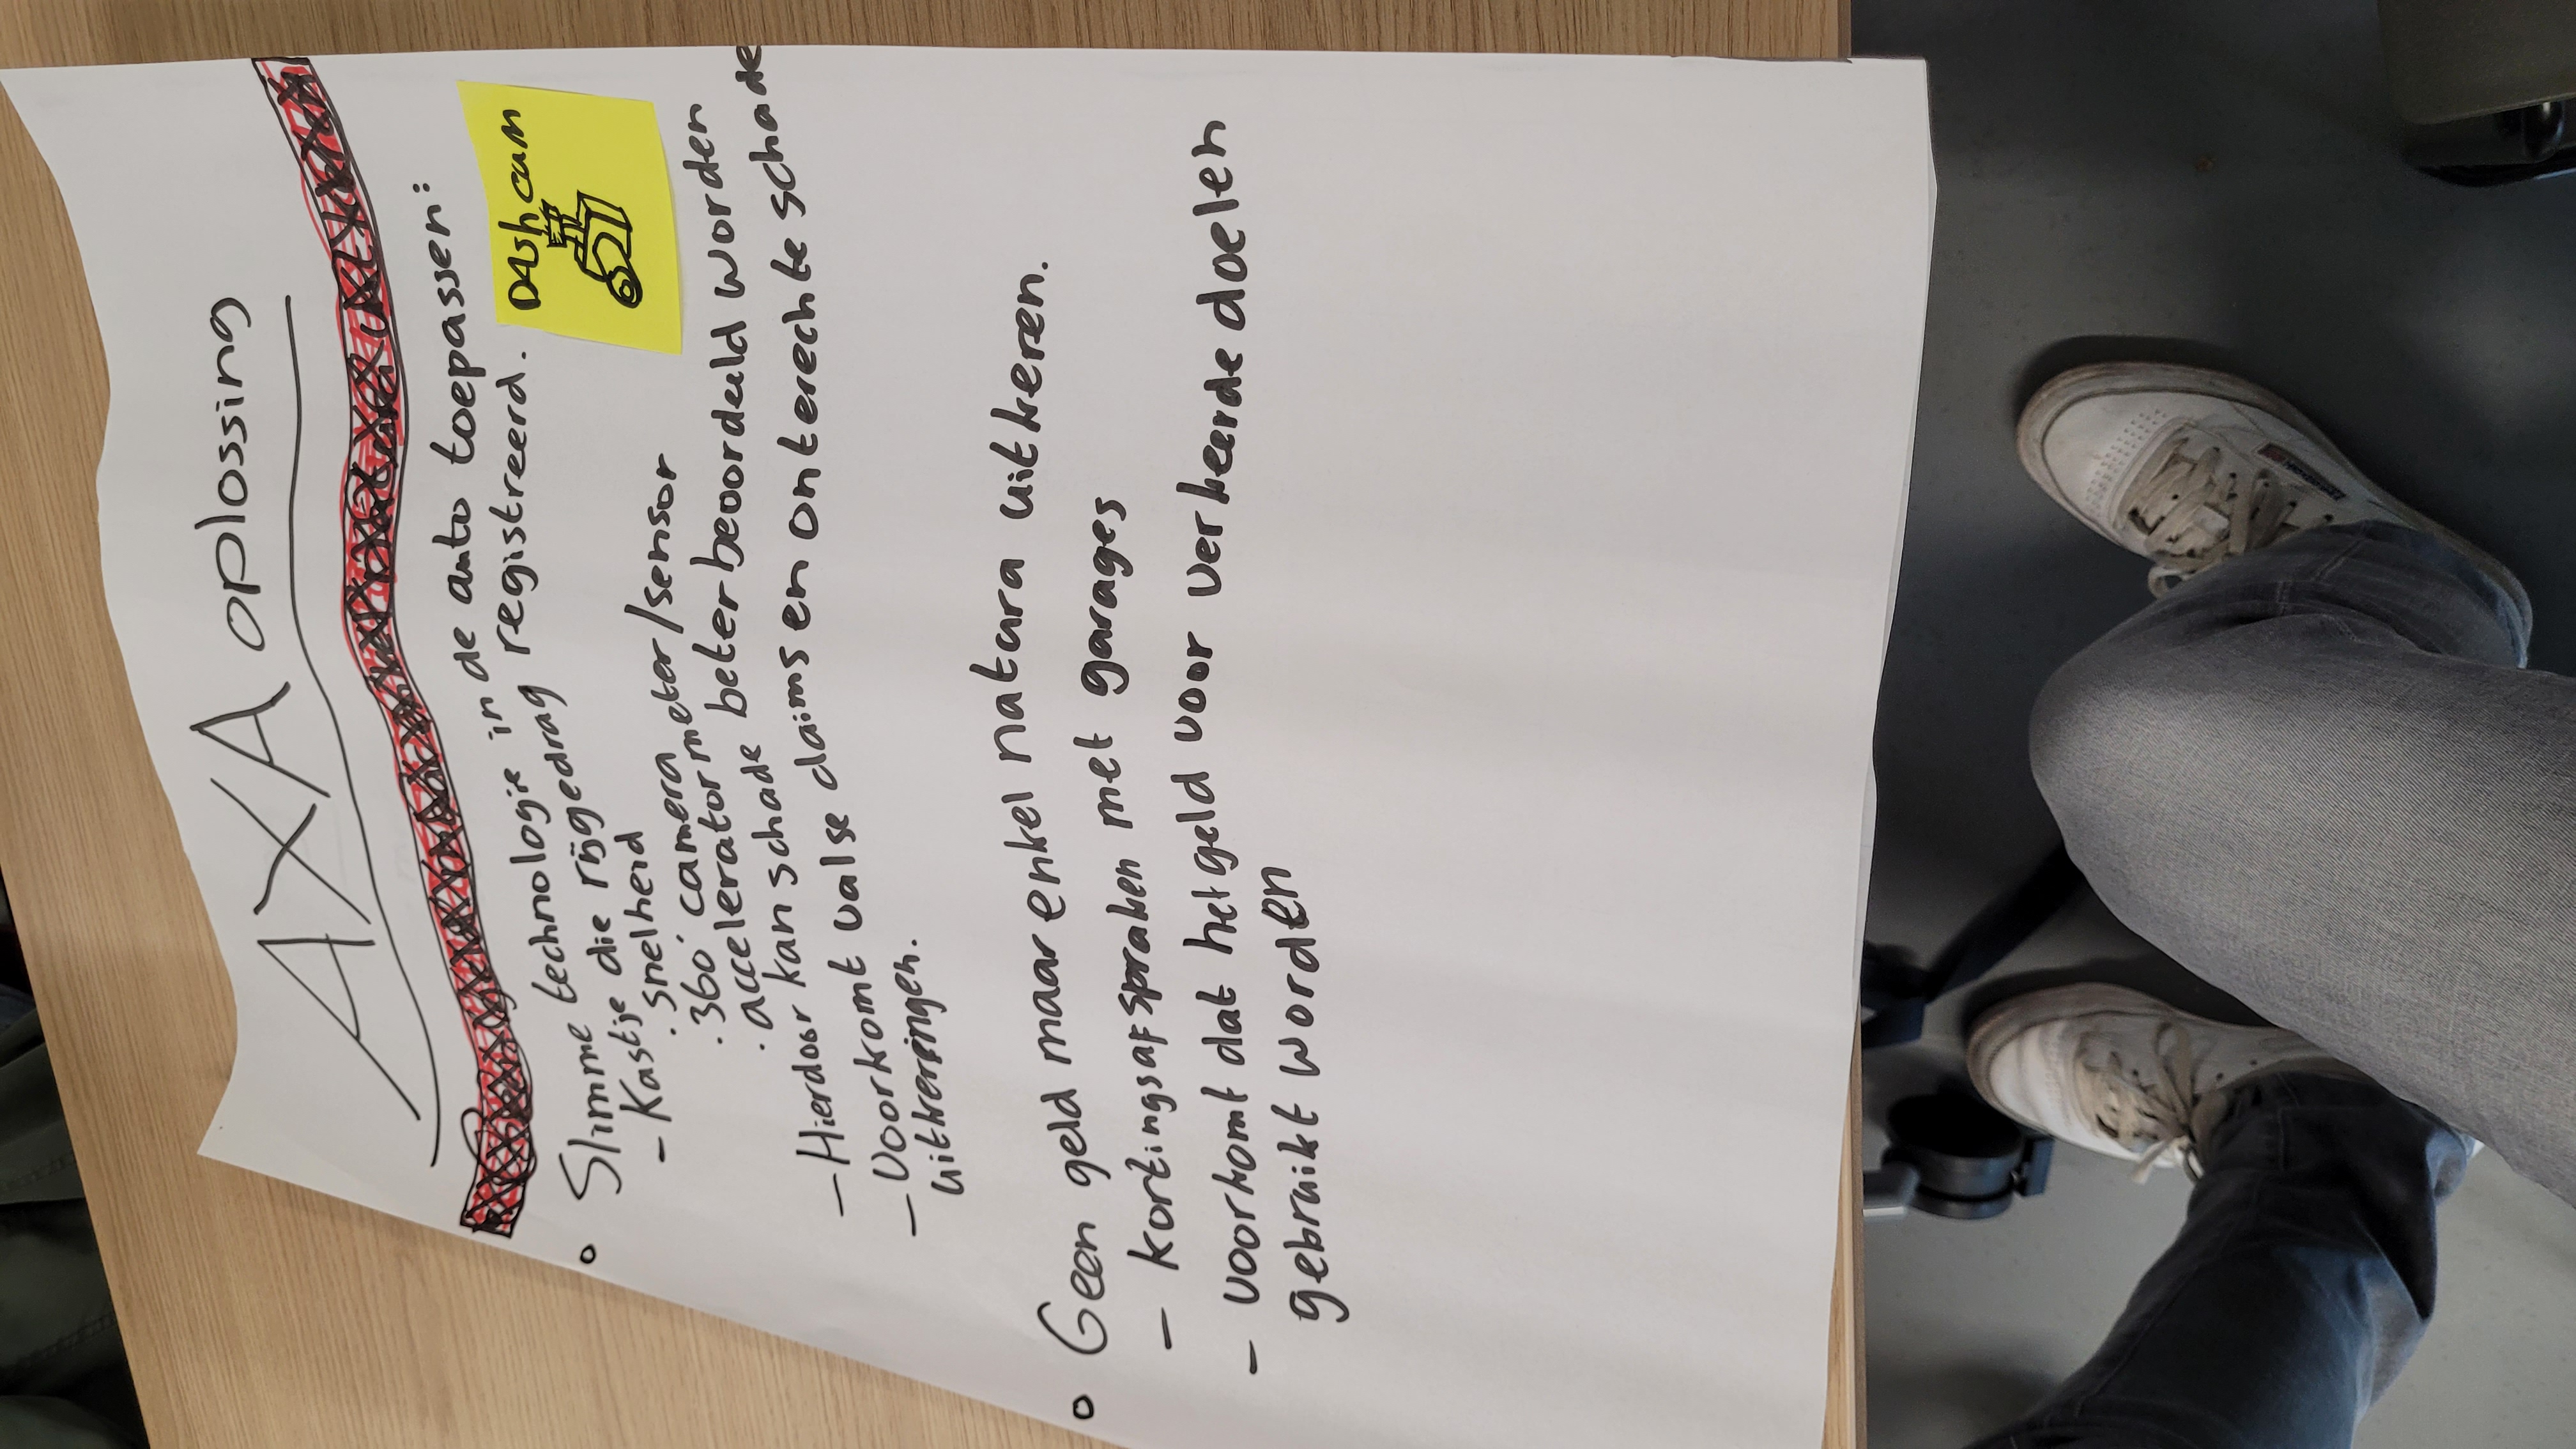 AXA oplossing
Geen geld maar enkel natura uitkeren
o Slimme technologie in de auto toepassen:
- Kastje die rijgedrag registreerd.
DAshcam
. snelheid
. 360° camera
. accelerator meter/sensor
- Hierdoor kan schade beter beoordeeld worden
- Voorkomt valse claims en onterechte schade
uitkeringen.
o Geen geld maar enkel natura uitkeren.
- kortingsafspraken met garages
- voorkomt dat het geld voor verkeerde doelen
gebruikt worden